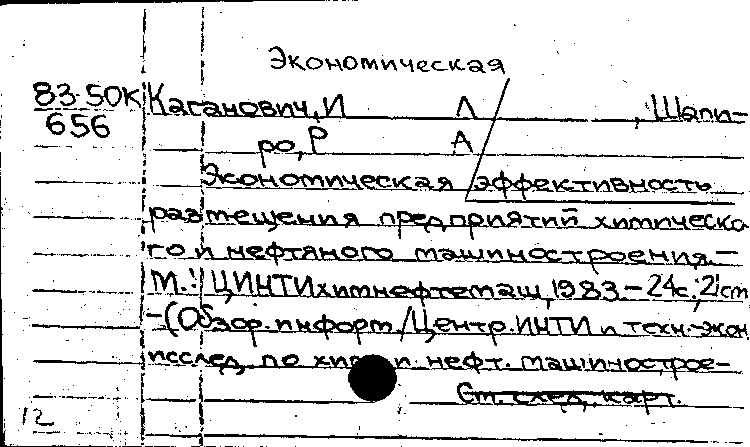 Экономическая
83-50К Каганович, И Л , Шапи-
656 ро, Р А
Экономическая эффективность
размещения предприятий химическо
го и нефтяного машиностроения.-
М.: ЦИНТИхимнефтемаш, 1983.- 24с.; 21cm
-(Обзор. информ. / Центр. ИНТИ и техн.-экон
исслед. по хим. и нефт. машинострое-
См. след. карт.
12